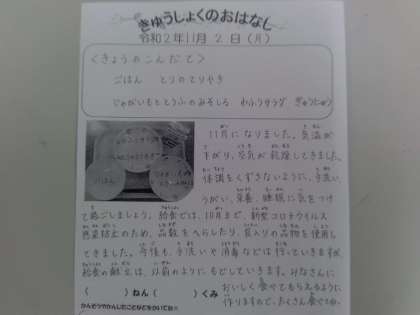 きゅうしょくのおはなし
令和2年11月2日(月)
<きょうのこんだて>
ごはん とりのてりやき
じゃがいもととうふのみそしる わふうサラダ ぎゅうにゅう
11月になりました。気温が
下がり、空気が乾燥してきました。
体調をくずさないように、手洗い、
うがい、栄養、睡眠に気をつけ
て過ごしましょう。給食では、10月まで、新型コロナウイルス
感染防止のため、品数をへらしたり、袋入りの品物を使用し
てきました。今後も、手洗いや消毒などは行っていきますが、
給食の献立は、以前のようにもどしていきます。みなさんに
おいしく食べてもらえるように
( )ねん( )くみ
作りますので、たくさん食べて
かんそうやかんしたことなどをかいてね